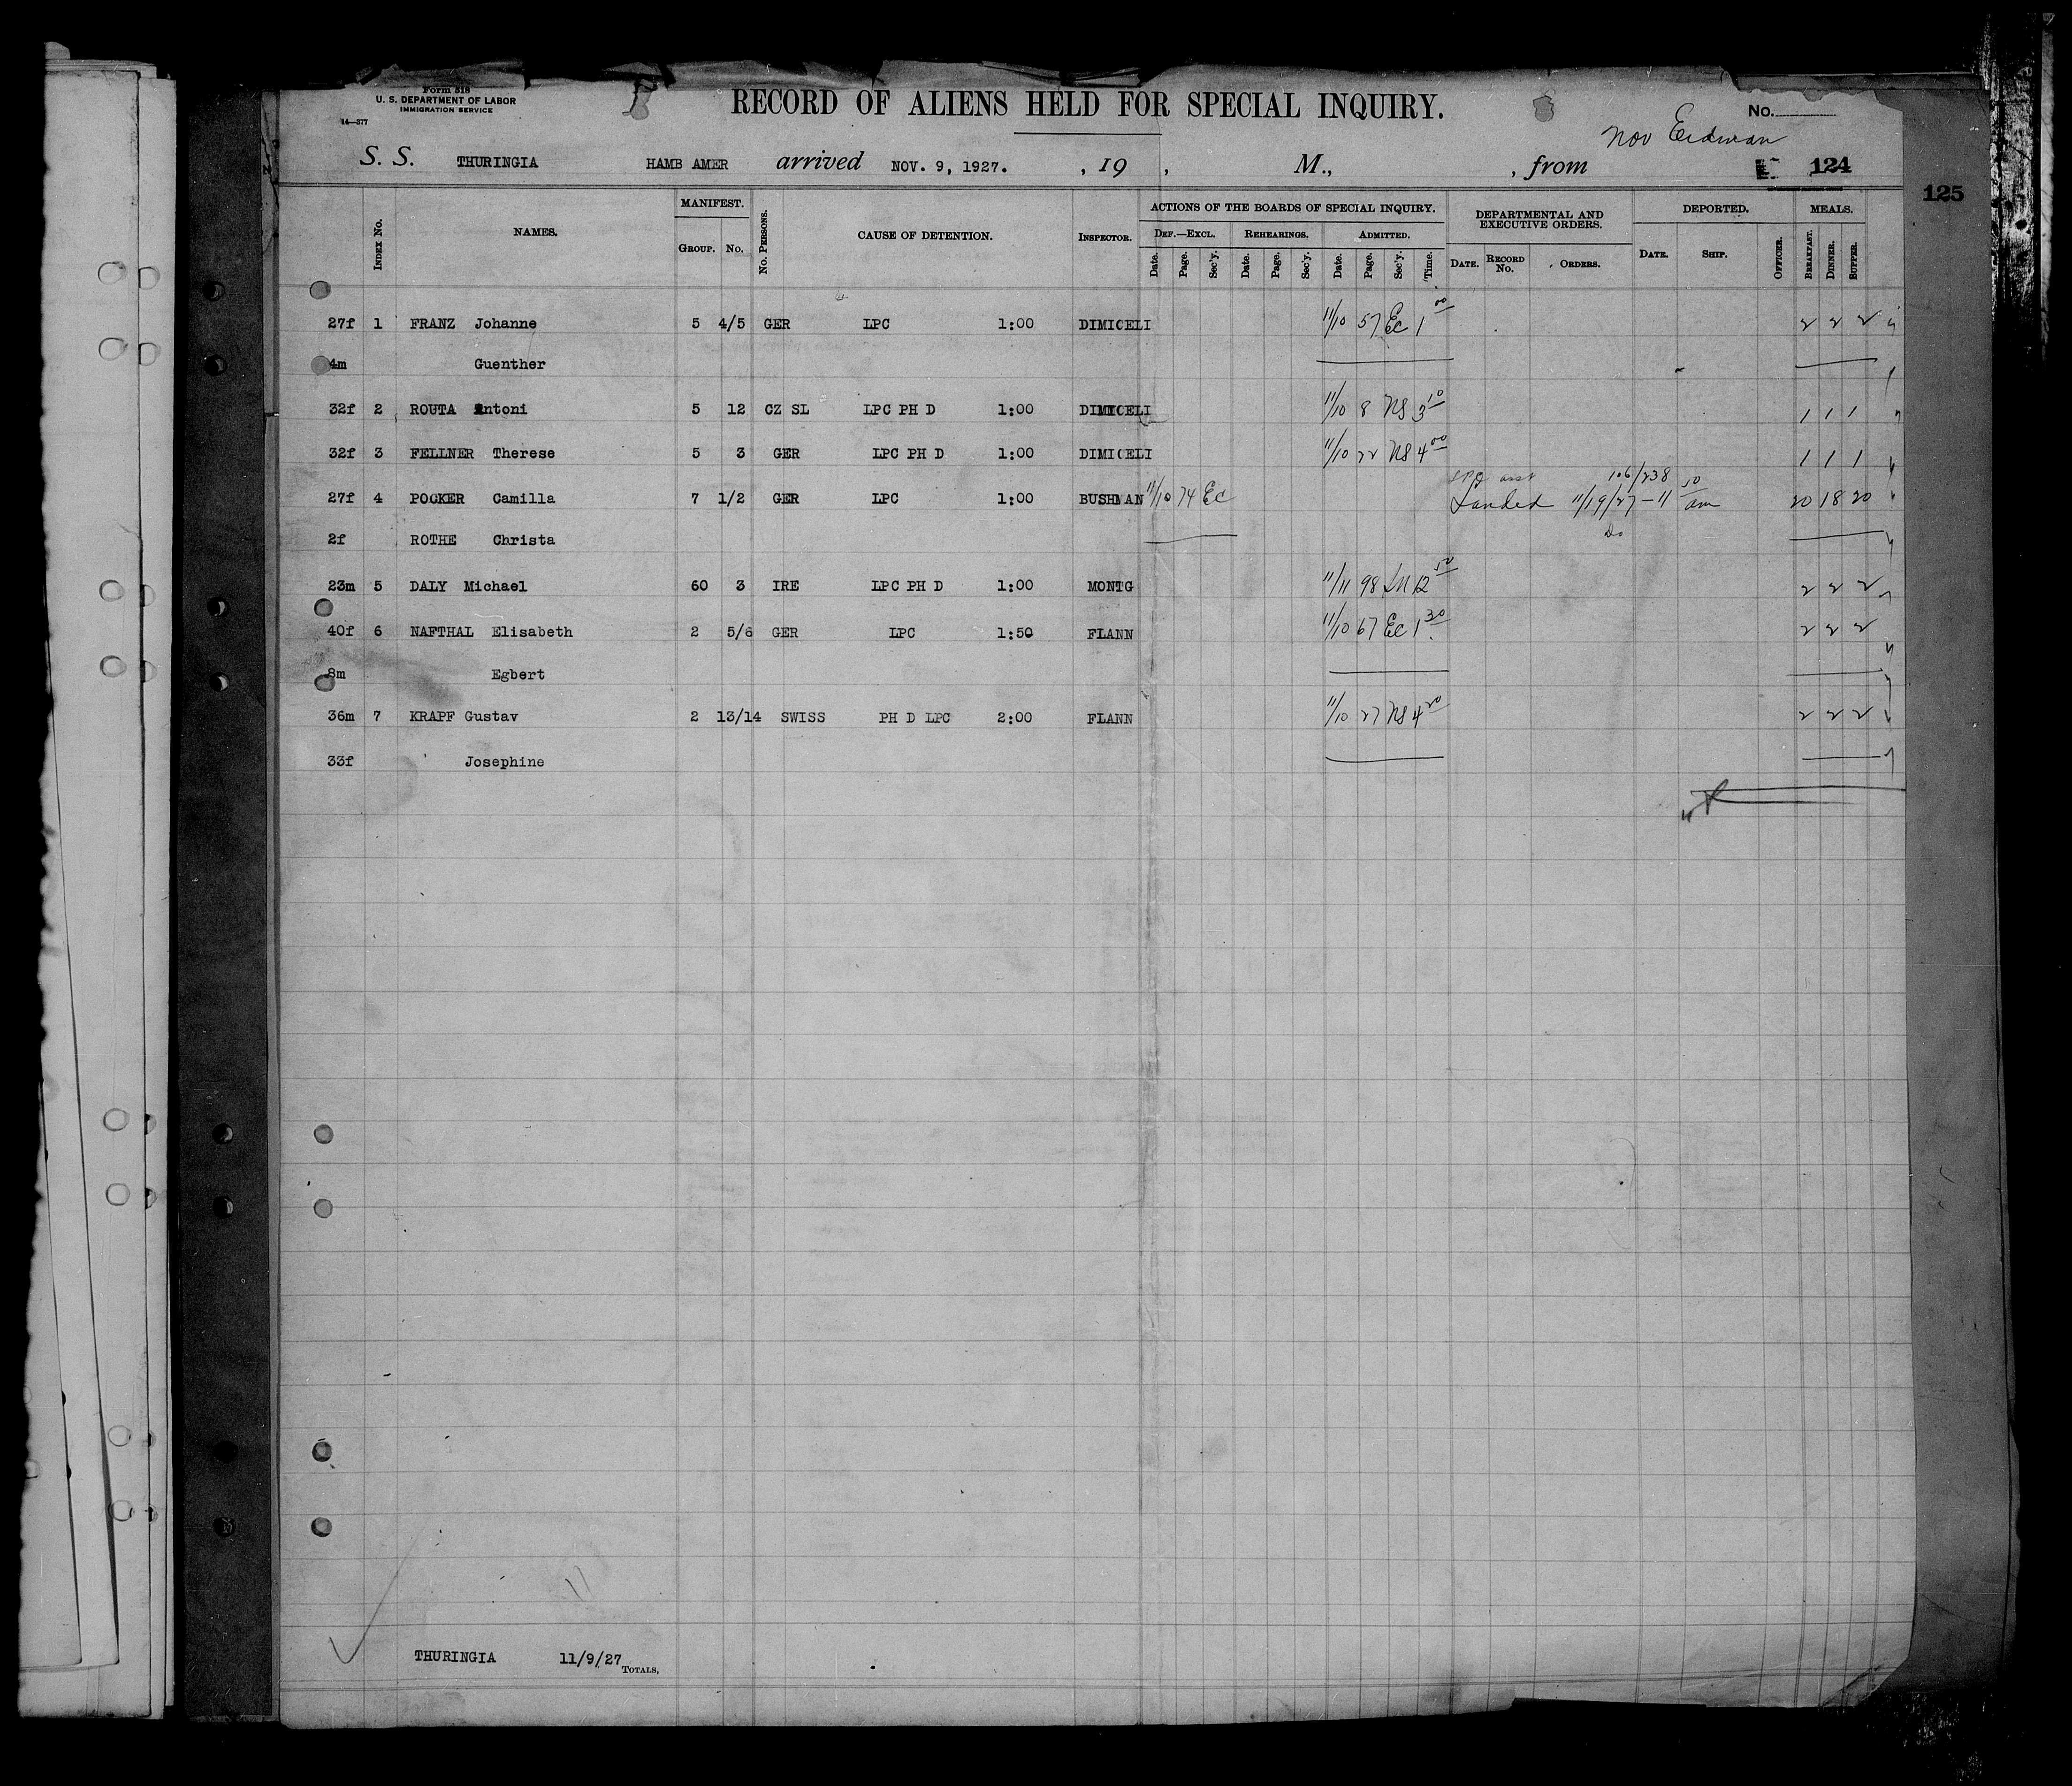 Form 518
U. S. DEPARTMENT OF LABOR
IMMIGRATION SERVICE
14—377
RECORD OF ALIENS HELD FOR SPECIAL INQUIRY.
No.
Nov Erdman
S. S. THURINGIA HAMB AMER arrived NOV. 9, 1927. , 19 , M., , from 124
125
INDEX No. NAMES. MANIFEST. GROUP. No. No. PERSONS. CAUSE OF DETENTION. INSPECTOR. ACTIONS OF THE BOARDS OF SPECIAL INQUIRY. DEF.—EXCL. Date. Page. Sec'y. REHEARINGS. Date. Page. Sec'y. ADMITTED. Date. Page. Sec'y. Time. DEPARTMENTAL AND EXECUTIVE ORDERS. DATE. RECORD No. ORDERS. DEPORTED. DATE. SHIP. OFFICER. MEALS. BREAKFAST. DINNER. SUPPER.
27f 1 FRANZ Johanne 5 4/5 GER LPC 1:00 DIMICELI 11/10 57 Ec 1 00 2 2 2
4m Guenther
32f 2 ROUTA Antoni 5 12 CZ SL LPC PH D 1:00 DIMICELI 11/10 8 NS 3 10 1 1 1
32f 3 FELLNER Therese 5 3 GER LPC PH D 1:00 DIMICELI 11/10 22 NS 4 00 1 1 1
106/238
27f 4 POCKER Camilla 7 1/2 GER LPC 1:00 BUSHMAN 11/10 74 Ec Landed 11/19/27-11 50 am 20 18 20
2f ROTHE Christa Do
23m 5 DALY Michael 60 3 IRE LPC PH D 1:00 MONTG 11/11 98 LM 12 50 2 2 2
40f 6 NAFTHAL Elisabeth 2 5/6 GER LPC 1:50 FLANN 11/10 67 Ec 1 30 2 2 2
8m Egbert
36m 7 KRAPF Gustav 2 13/14 SWISS PH D LPC 2:00 FLANN 11/10 27 NS 4 20 2 2 2
33f Josephine
THURINGIA 11/9/27
TOTALS,